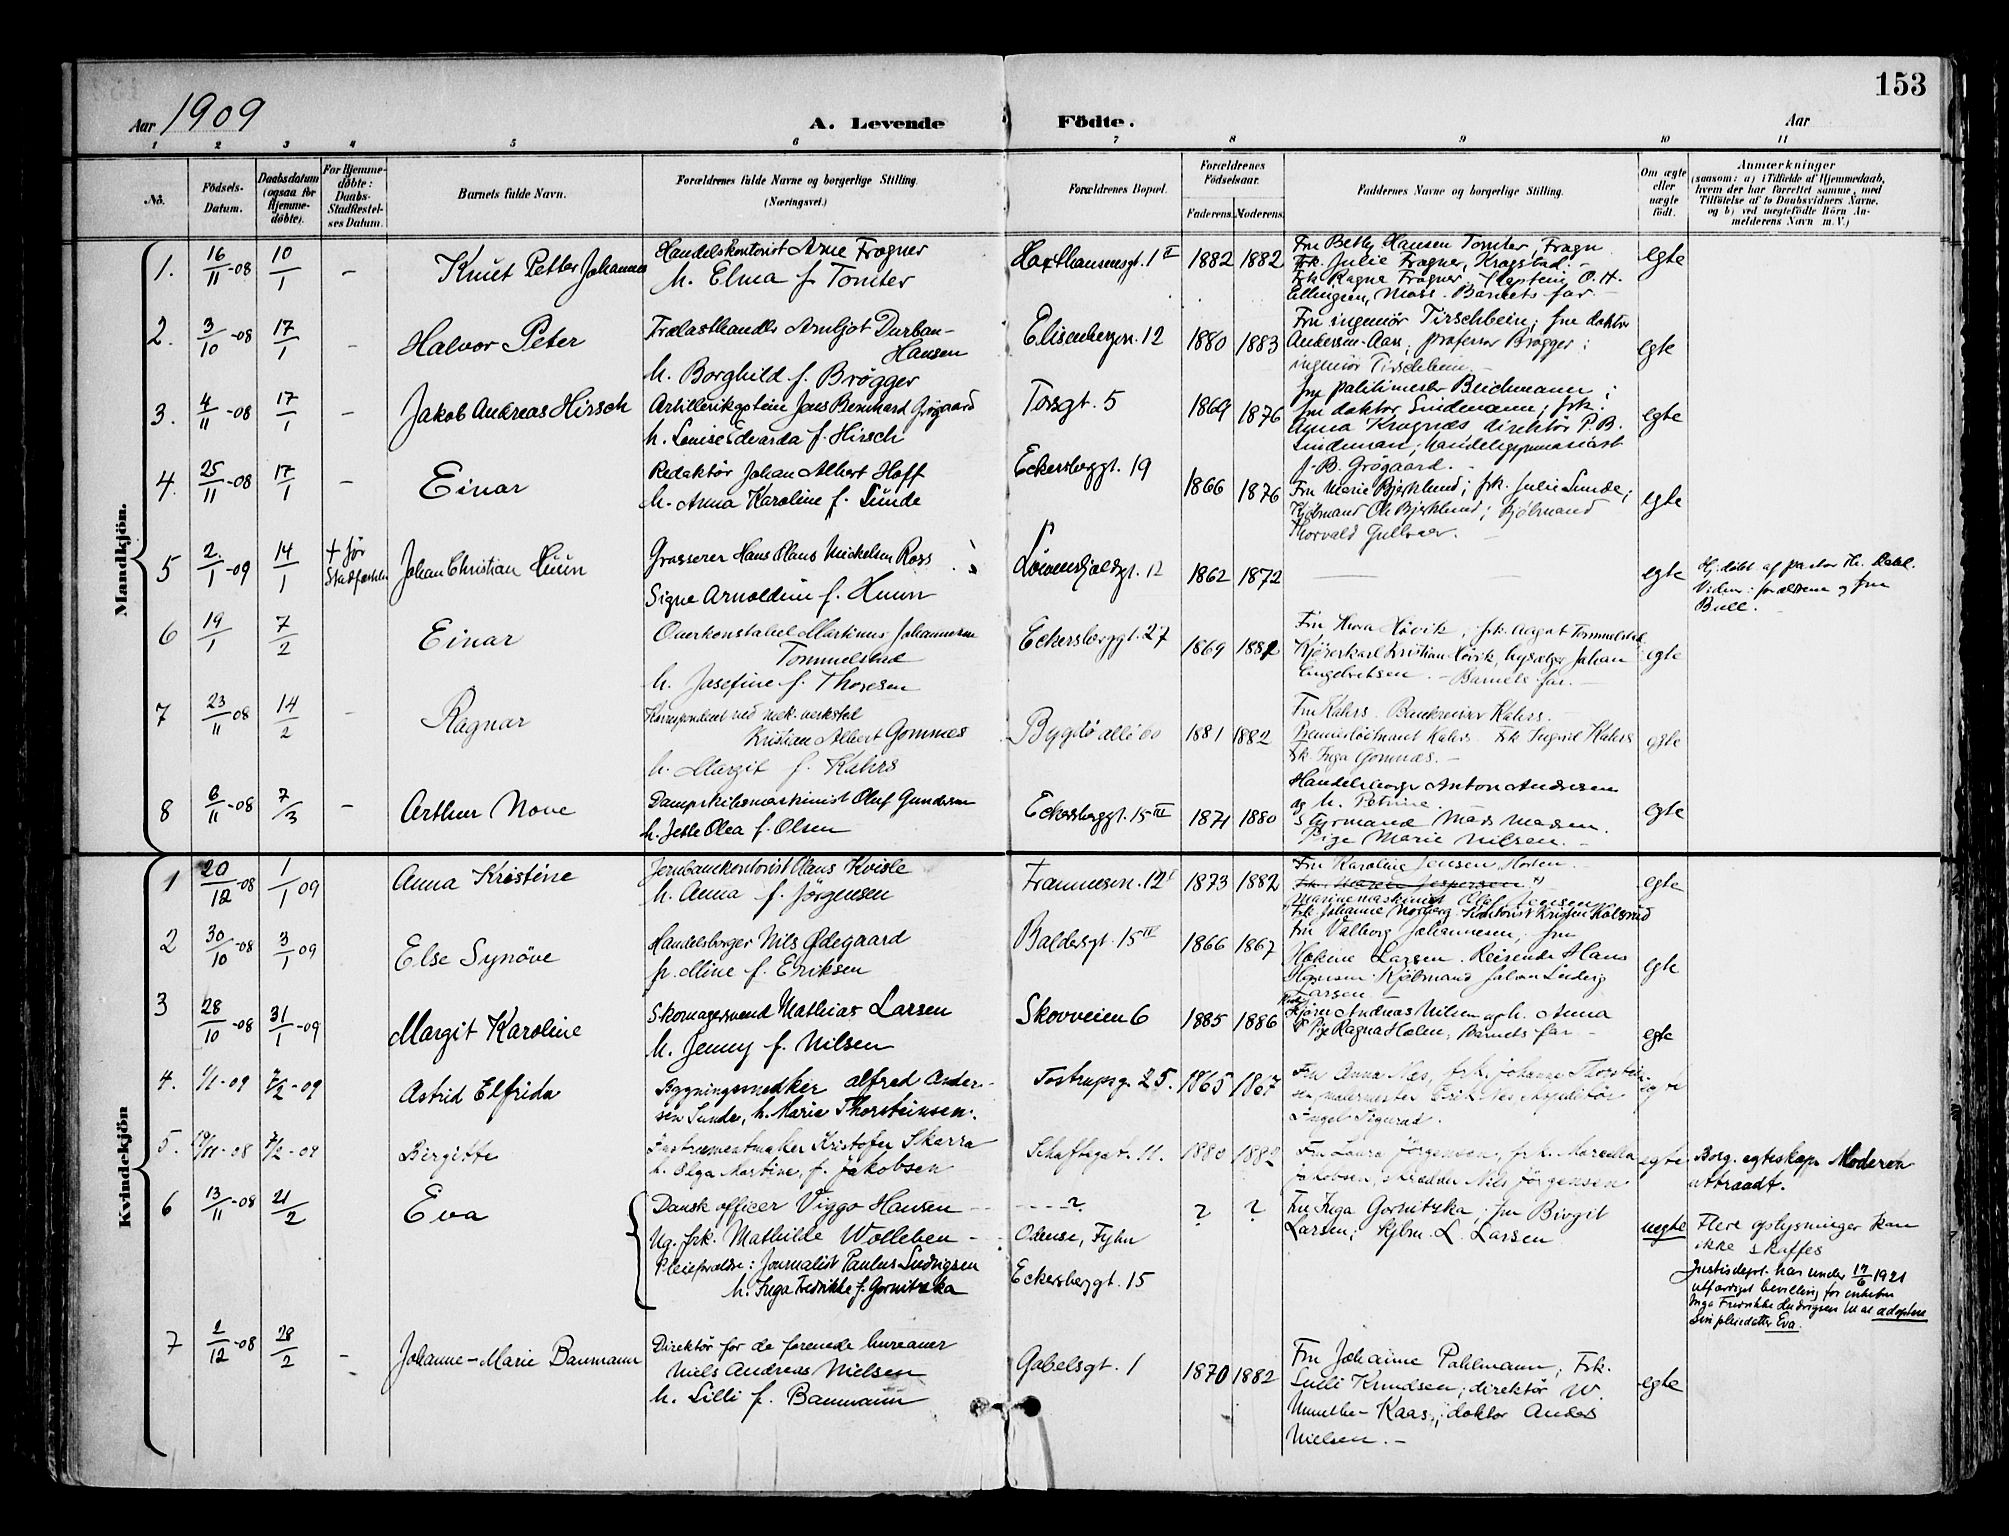 153
Aar 1909
A. Levende Fødte.
Aar
1 2 3 4 5 6 7 8 9 10 11
No.
Fødsels-Datum.
Daabsdatum (ogsaa for Hjemme-døbte).
For Hjemme-døbte: Daabs-Stadfæstel-ses Datum.
Barnets fulde Navn.
Forældrenes fulde Navne og borgerlige Stilling.
(Næringsvei.)
Forældrenes Bopæl.
Forældrenes Fødselsaar.
Faderens. Moderens.
Faddernes Navne og borgerlige Stilling.
Om ægte eller uægte født.
Anmærkninger
(saasom: a) i Tilfælde af Hjemmedaab,
hvem der har forrettet samme, med
Tilføielse af to Daabsvidners Navne,
og b) ved uegtefødte Børn An-
melderens Navn m. V.)
Mandkjøn.
1. 16/11-08 10/1 - Knut Petter Johannes
Handelskontorist Arne Frogner
h. Elma f. Tomter
Haxthausensgt. 1 II 1882 1882
Fru Betly Hansen Tomter, Frogn
Frk. Julie Frogner, Kragstad. -
Frk. Ragna Frogner, Kaptein O. H.
Ellingsen, Moss. Barnets far. -
egte
2. 3/10-08 17/1 - Halvor Peter
Trælasthandler Arnljot Durban-
Hansen
h. Borghild f. Brøgger
Elisenbergvn. 12 1880 1883
Fru ingeniør Tirschbein; fru doktor
Ankersen-Aars; professor Brøgger;
ingeniør Tirschbein. -
egte
3. 4/11-08 17/1 - Jakob Andreas Hirsch
Artillerikaptein Jens Bernhard Grøgaard
h. Louise Edvarda f. Hirsch
Torsgt. 5 1869 1876
fru politimester Beichmann;
fru doktor Lindemann; frk.
Anna Kragnæs direktør P. B.
Lindeman; handelsgymnasiast
J. B. Grøgaard. -
egte
4. 25/11-08 17/1 - Einar
Redaktør Johan Albert Hoff
h. Anna Karoline f. Lunde
Eckersberggt. 19 1866 1876
Fru Marie Bjerklund; frk. Julie Lunde;
Kjøbmand Ole Bjerklund; Kjøbmand
Thorvald Gullvaer. -
egte
5 2/1-09 14/1 + før Stadfæstelse Johan Christian Huun
Grosserer Hans Claus Mickelsen Ross
Signe Arnoldine f. Huun
Løvenskjoldsgt. 12 1862 1872
egte
Hj. døbt af pastor Th. Dahl.
Vidner: forældrene og fru
Bull. -
6 19/1 7/2 Einar
Overkonstabel Martinus Johannesen
Tommelstad
h. Josefine f. Thoresen
Eckersberggt. 27 1869 1882
Fru Thora Høvik, frk. Aagot Tommelstad,
Kjørerkarl Kristian Høvik, Johan
Engebretsen. - Barnets far. -
egte
7 23/11 08 14/2 - Ragnar
Korrespondent ved mek. verksted
Kristian Albert Gomnæs
h. Margit f. Kahrs
Bygdø allé 60 1881 1882
Fru Kahrs. Bankreviser Kahrs. -
Premierløitnant Kahrs. Frk Ingrid Kahrs
Frk Inga Gomnæs. -
egte
8 6/11-08 7/3 - Arthur Nove
Dampskibsmaskinist Oluf Gundersen
h. Jette Olea f. Olsen
Eckersberggt. 15 III 1871 1880
Handelsborger Anton Andresen
og h. Petrine.
Styrmand Mads Madsen.
Pige Marie Nilsen. -
egte
Kvindekjøn
1 20/12-08 1/1 09 Anna Kristine
Jernbanekontorist Hans Kvisle
h. Anna f. Jørgensen
Framnesvn. 12 I 1873 1882
Fru Karoline Jensen, Horten
Frk. Maren Jespersen
Marinemaskinist Olaf Jensen
Frk. Johanne Norberg. Kontorist Kristen Kolsrud
egte
2 30/10-08 3/1 09 Else Synöve
Handelsborger Nils Ødegaard
h. Mine f. Eriksen
Baldersgt. 15 IV 1866 1867
Fru Valborg Johannesen, fru
Hakine Larsen. Reisende Hans
Hansen. Kjøbmand Johan Ludvig
Larsen
egte
3 28/10-08 31/1-09 Margit Karoline
Skomagersvend Mathias Larsen
h. Jenny f. Nilsen
Skovveien 6 1885 1886
Andreas Nilsen og h. Anna
Pige Ragna Holen, Barnets far -
egte
4. 1/1-09 7/2-09 Astrid Elfrida
Bygningssnedker Alfred Ander-
sen Sunde, h. Marie Thorsteinsen.
Tostrupsg. 25. 1865 1867
Fru Anna Næs, frk. Johanne Thorstein-
sen, malermester Erik Næs,
Engel Sigurad.
egte
5. 19/11-08 7/2-09 Birgitte
Instrumentmaker Kristofer Skarra
h. Olga Martine, f. Jakobsen
Schaftesgt. 11. 1880 1882
Fru Laura Jørgensen, frk. Marcella
Jakobsen, skrædder Nils Jørgensen
egte.
Borg. egteskap. Moderen
utraadt.
6 13/11-08 21/2 Eva
Dansk officer Viggo Hansen ---
Ug. frk. Mathilde Wolleben -
Pleieforældre: Journalist Paulus Ludvigsen
h. Inga Fredrikke f. Gornitzka
----?
Odense, Fyhn
Eckersberggt. 15
? ?
Fru Inga Gornitzka, fru Birgit
Larsen; Kjbm. L. Larsen
uegte
Flere oplysninger kan
ikke skaffes
Justisdept. har under 17/6 1921
utfærdiget bevilling for enkefru
Inga Fredrikke Ludvigsen til at adoptere
sin pleiedatter Eva.
7 2/12-08 28/2 - Johanne-Marie Baumann
Direktør for de forenede bureauer
Niels Andreas Nielsen
h. Lilli f. Baumann
Gabelsgt. 1 1870 1882
Fru Johanne Pahlmann; Frk.
Lulli Knudsen; direktør W.
Munthe-Kaas; doktor Anders
Nielsen. -
egte